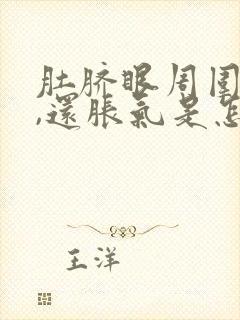 肚脐眼周围
,還脹氣是怎
王洋